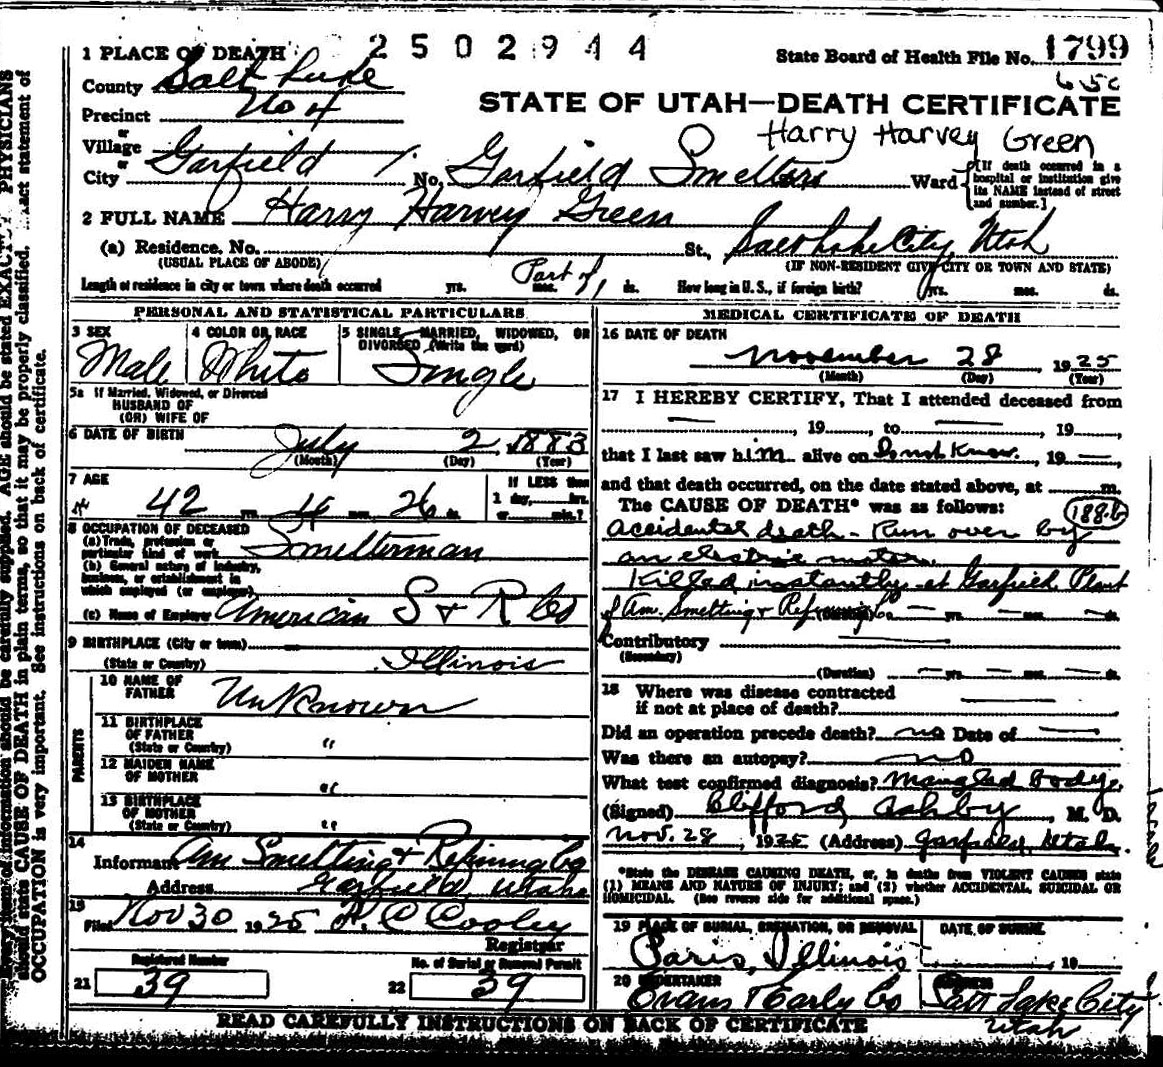 2502944
1 PLACE OF DEATH
State Board of Health File No. 1799
County Salt Lake
Precinct No 4
STATE OF UTAH—DEATH CERTIFICATE
or
Village
Harry Harvey Green
or
City Garfield No. Garfield Smelters Ward
[If death occurred in a hospital or institution give its NAME instead of street and number.]
2 FULL NAME Harry Harvey Green
(a) Residence. No. St., Salt Lake City, Utah
(USUAL PLACE OF ABODE) (IF NON-RESIDENT GIVE CITY OR TOWN AND STATE)
Length of residence in city or town where death occurred yrs. mos. Part of 1 ds. How long in U. S., if foreign birth? yrs. mos. ds.
PERSONAL AND STATISTICAL PARTICULARS
3 SEX 4 COLOR OR RACE 5 SINGLE, MARRIED, WIDOWED, OR
DIVORCED (Write the word)
Male White Single
5a If Married, Widowed, or Divorced
HUSBAND OF
(OR) WIFE OF
6 DATE OF BIRTH July 2, 1883
(Month) (Day) (Year)
7 AGE 42 yrs. 4 mos. 26 ds.
If LESS than
1 day, hrs.
or min.?
8 OCCUPATION OF DECEASED
(a) Trade, profession or
particular kind of work Smelterman
(b) General nature of industry,
business, or establishment in
which employed (or employer)
(c) Name of Employer American S & R Co
9 BIRTHPLACE (City or town)
(State or Country) Illinois
PARENTS
10 NAME OF
FATHER Unknown
11 BIRTHPLACE
OF FATHER
(State or Country) "
12 MAIDEN NAME
OF MOTHER "
13 BIRTHPLACE
OF MOTHER
(State or Country) "
14
Informant Am Smelting & Refining Co
Address Garfield Utah
15
Filed Nov 30 1925 H. C Cooley
Registrar
Registered Number No. of Burial or Removal Permit
21 39 22 39
MEDICAL CERTIFICATE OF DEATH
16 DATE OF DEATH
November 28 1925
(Month) (Day) (Year)
17 I HEREBY CERTIFY, That I attended deceased from
— , 19 , to — , 19
that I last saw him alive on Don't Know, 19 —
and that death occurred, on the date stated above, at m.
The CAUSE OF DEATH* was as follows: 188-b
accidental death - Run over by
an electric motor.
Killed instantly at Garfield Plant
of Am. Smelting & Refining Co (Duration) — yrs. — mos. — ds.
Contributory
(Secondary)
(Duration) — yrs. — mos. — ds.
18 Where was disease contracted
if not at place of death?
Did an operation precede death? no Date of —
Was there an autopsy? no
What test confirmed diagnosis? Mangled body.
(Signed) Clifford Ashby, M. D.
Nov. 28, 1925 (Address) Garfield, Utah.
*State the DISEASE CAUSING DEATH, or, in deaths from VIOLENT CAUSES state
(1) MEANS AND NATURE OF INJURY; and (2) whether ACCIDENTAL, SUICIDAL OR
HOMICIDAL. (See reverse side for additional space.)
19 PLACE OF BURIAL, CREMATION, OR REMOVAL DATE OF BURIAL
Paris, Illinois , 19
20 UNDERTAKER ADDRESS
Evans & Early Co Salt Lake City
Utah
READ CAREFULLY INSTRUCTIONS ON BACK OF CERTIFICATE
information should be carefully supplied. AGE should be stated EXACTLY. PHYSICIANS
should state CAUSE OF DEATH in plain terms, so that it may be properly classified. Exact statement of
OCCUPATION is very important. See instructions on back of certificate.